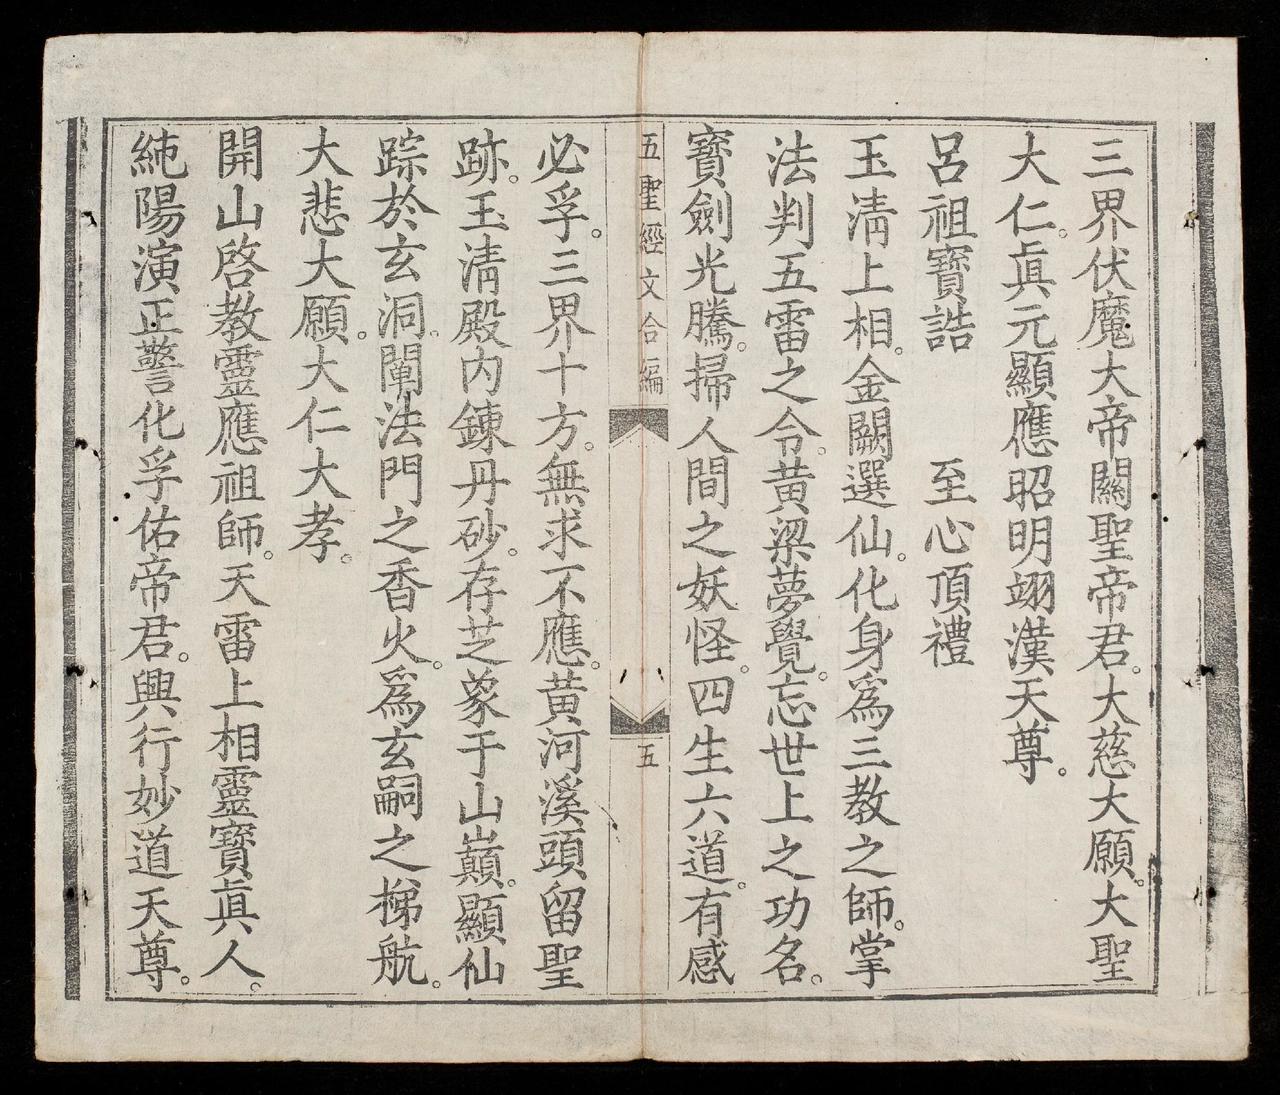 三界伏魔大帝關聖帝君。大慈大願。大聖
大仁。眞元顯應昭明翊漢天尊。
呂祖寶誥　至心頂禮
玉淸上相。金闕選仙。化身爲三教之師。掌
法判五雷之令。黃粱夢覺。忘世上之功名。
寶劍光騰。掃人間之妖怪。四生六道。有感
五聖經文合編
五
必孚。三界十方。無求不應。黃河溪頭留聖
跡。玉淸殿内鍊丹砂。存芝象于山巔。顯仙
踪於玄洞。闡法門之香火。爲玄嗣之梯航。
大悲大願。大仁大孝。
開山啓教靈應祖師。天雷上相靈寶眞人。
純陽演正警化孚佑帝君。興行妙道天尊。